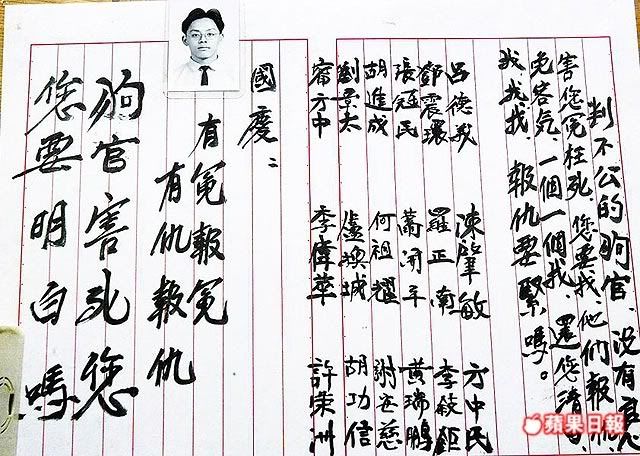 判不公的狗官、没有良心
害您冤枉死、您要找他們報仇
免客氣、一個一個找、還您清白、
找、找、找、報仇要緊嗎。
呂德義 陳肇敏 方中民
鄧震環 羅正南 李
張冠民 平 黃瑞鵬
胡進成 何祖耀 謝 慈
劉景太 盧換城 胡功信
方中 李偉華 許榮洲
國慶：
有冤報冤
有仇報仇
狗官害死您
您要明白嗎
蘋果日報